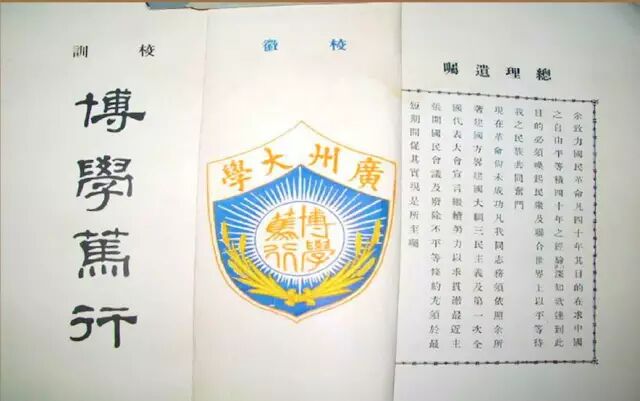 總理遺囑
余致力國民革命凡四十年其目的在求中國
之自由平等積四十年之經驗深知欲達到此
目的必須喚起民衆及聯合世界上以平等待
我之民族共同奮鬥
現在革命尚未成功凡我同志務須依照余所
著建國方畧建國大綱三民主義及第一次全
國代表大會宣言繼續努力以求貫澈最近主
張開國民會議及廢除不平等條約尤須於最
短期間促其實現是所至囑
校徽
廣州大學
博學
篤行
校訓
博學篤行